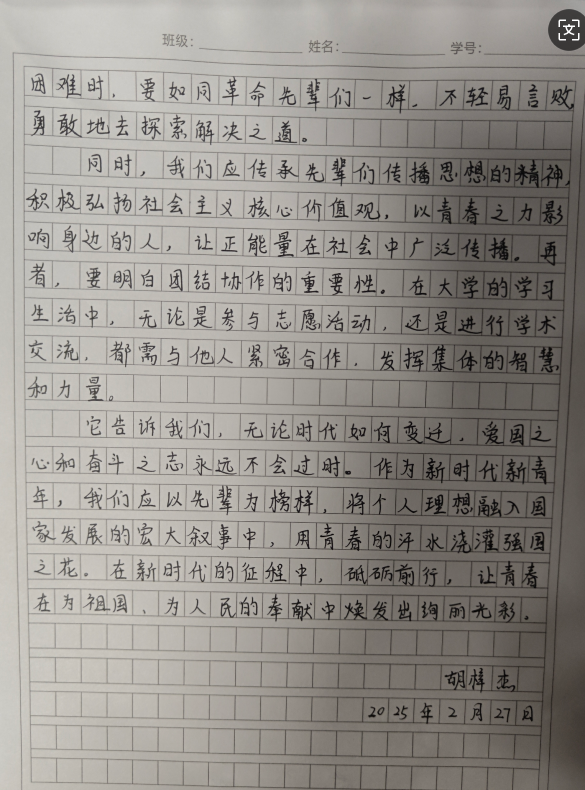 班级： 姓名： 学号：
困难时，要如同革命先辈们一样，不轻易言败，
勇敢地去探索解决之道。
同时，我们应传承先辈们传播思想的精神，
积极弘扬社会主义核心价值观，以青春之力影
响身边的人，让正能量在社会中广泛传播。再
者，要明白团结协作的重要性。在大学的学习
生治中，无论是参与志愿活动，还是进行学术
交流，都需与他人紧密合作，发挥集体的智慧
和力量。
它告诉我们，无论时代如何变迁，爱国之
心和奋斗之志永远不会过时。作为新时代新青
年，我们应以先辈为榜样，将个人理想融入国
家发展的宏大叙事中，用青春的汗水浇灌强国
之花。在新时代的征程中，砥砺前行，让青春
在为祖国、为人民的奉献中焕发出绚丽光彩。
胡梓杰
2025年2月27日